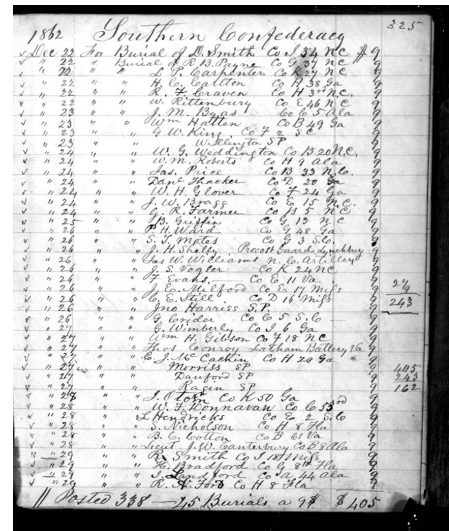 325
1862 Southern Confederacy
Dec 22 For Burial of D. Smith Co I 34 NC $ 9
" 22 " Burial of R B. Payne Co G 37 NC 9
" 22 " " L P. Carpenter Co K 27 NC 9
" 22 " " H. C. Carlton Co D 38 Ga 9
" 22 " " R. F. Craven Co H 3 NC. 9
" 22 " " W. Rittenbury Co E 46 NC 9
" 23 " " J. M. Co C 5 Ala 9
" 23 " " Wm Hatten Co D 49 Ga 9
" 23 " " G W. King Co F 2 S C 9
" 23 " " W. SP 9
" 24 " " W. G. Weddington Co B 20 NC, 9
" 24 " " W. M. Roberts Co H 9 Ala 9
" 24 " " Jas. Price Co B 33 N.C. 9
" 24 " " Danl Thacker Co D 20 Ga 9
" 24 " " W. H Glover Co F 24 Ga 9
" 24 " " J. W. Bragg Co E 15 N.C. 9
" 24 " " G. R. Farmer Co B 5 NC 9
" 25 " " J B. Griffin Co G 13 NC 9
" 26 " " P H. Ward Co G 48 Ga 9
" 26 " " S. T. Motes Co G 3 S.C. 9
" 26 " " J. H. Shelly Provost Guard Lynchburg 9
" 26 " " Jas W. Williams N. C. Artillery 9
" 26 " " J. S Vogler Co K 24 NC 9
" 26 " " F Evans, Co E 11 Va 9
" 26 " " J. C. Milford Co E 17 Miss 9 27/9
" 26 " " C. C. Still Co D 16 Miss 9 243
" 26 " " Jno Harriss S.P. 9
" 26 " " G. Crider Co C 5 S.C 9
" 27 " " G. Wimberly Co I 6 Ga 9
" 27 " " Wm H. Gibson Co F 18 NC 9
" 27 " " Thos Conroy Latham Battery Va 9
" 27 " " C. J. McCackin Co H 20 Ga 9
" 27 " " Morriss SP 9 405
" 27 " " Danford SP 9 243
" 27 " " Ragin SP 9 162
" 28 " " J. Co K 50 Ga 9
" 28 " " W. F. Donnavan Co C 53rd 9
" 28 " " L Hendricks Co E 2 S.C 9
" 28 " " S. Nicholson Co H 8 Fla 9
" 28 " " B. C. Cotton Co B 61 Va 9
" 28 " " Lieut J. W. Canterbury Co E 8 Ala 9
" 29 " " R Smith Co I 18 Miss 9
" 29 " " H. Bradford Co G 8th Fla 9
" 29 " " J. Langford Co A 44 Ala 9
" 29 " " R. A. Ford Co H 8 Fla 9
Posted 338 — 45 Burials a 9$ $405